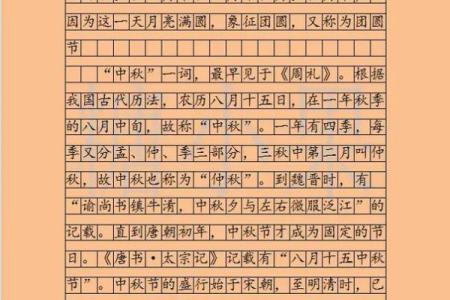 因为这一天月亮满圆，象征团圆，又称为团圆
节
“中秋”一词，最早见于《周礼》。根据
我国古代历法，农历八月十五日，在一年秋季
的八月中旬，故称“中秋”。一年有四季，每
季又分孟、仲、季三部分，三秋中第二月叫仲
秋，故中秋也称为“仲秋”。到魏晋时，有
“谕尚书镇牛渚，中秋夕与左右微服泛江”的
记载。直到唐朝初年，中秋节才成为固定的节
日。《唐书·太宗记》记载有“八月十五中秋
节”。中秋节的盛行始于宋朝，至明清时，已